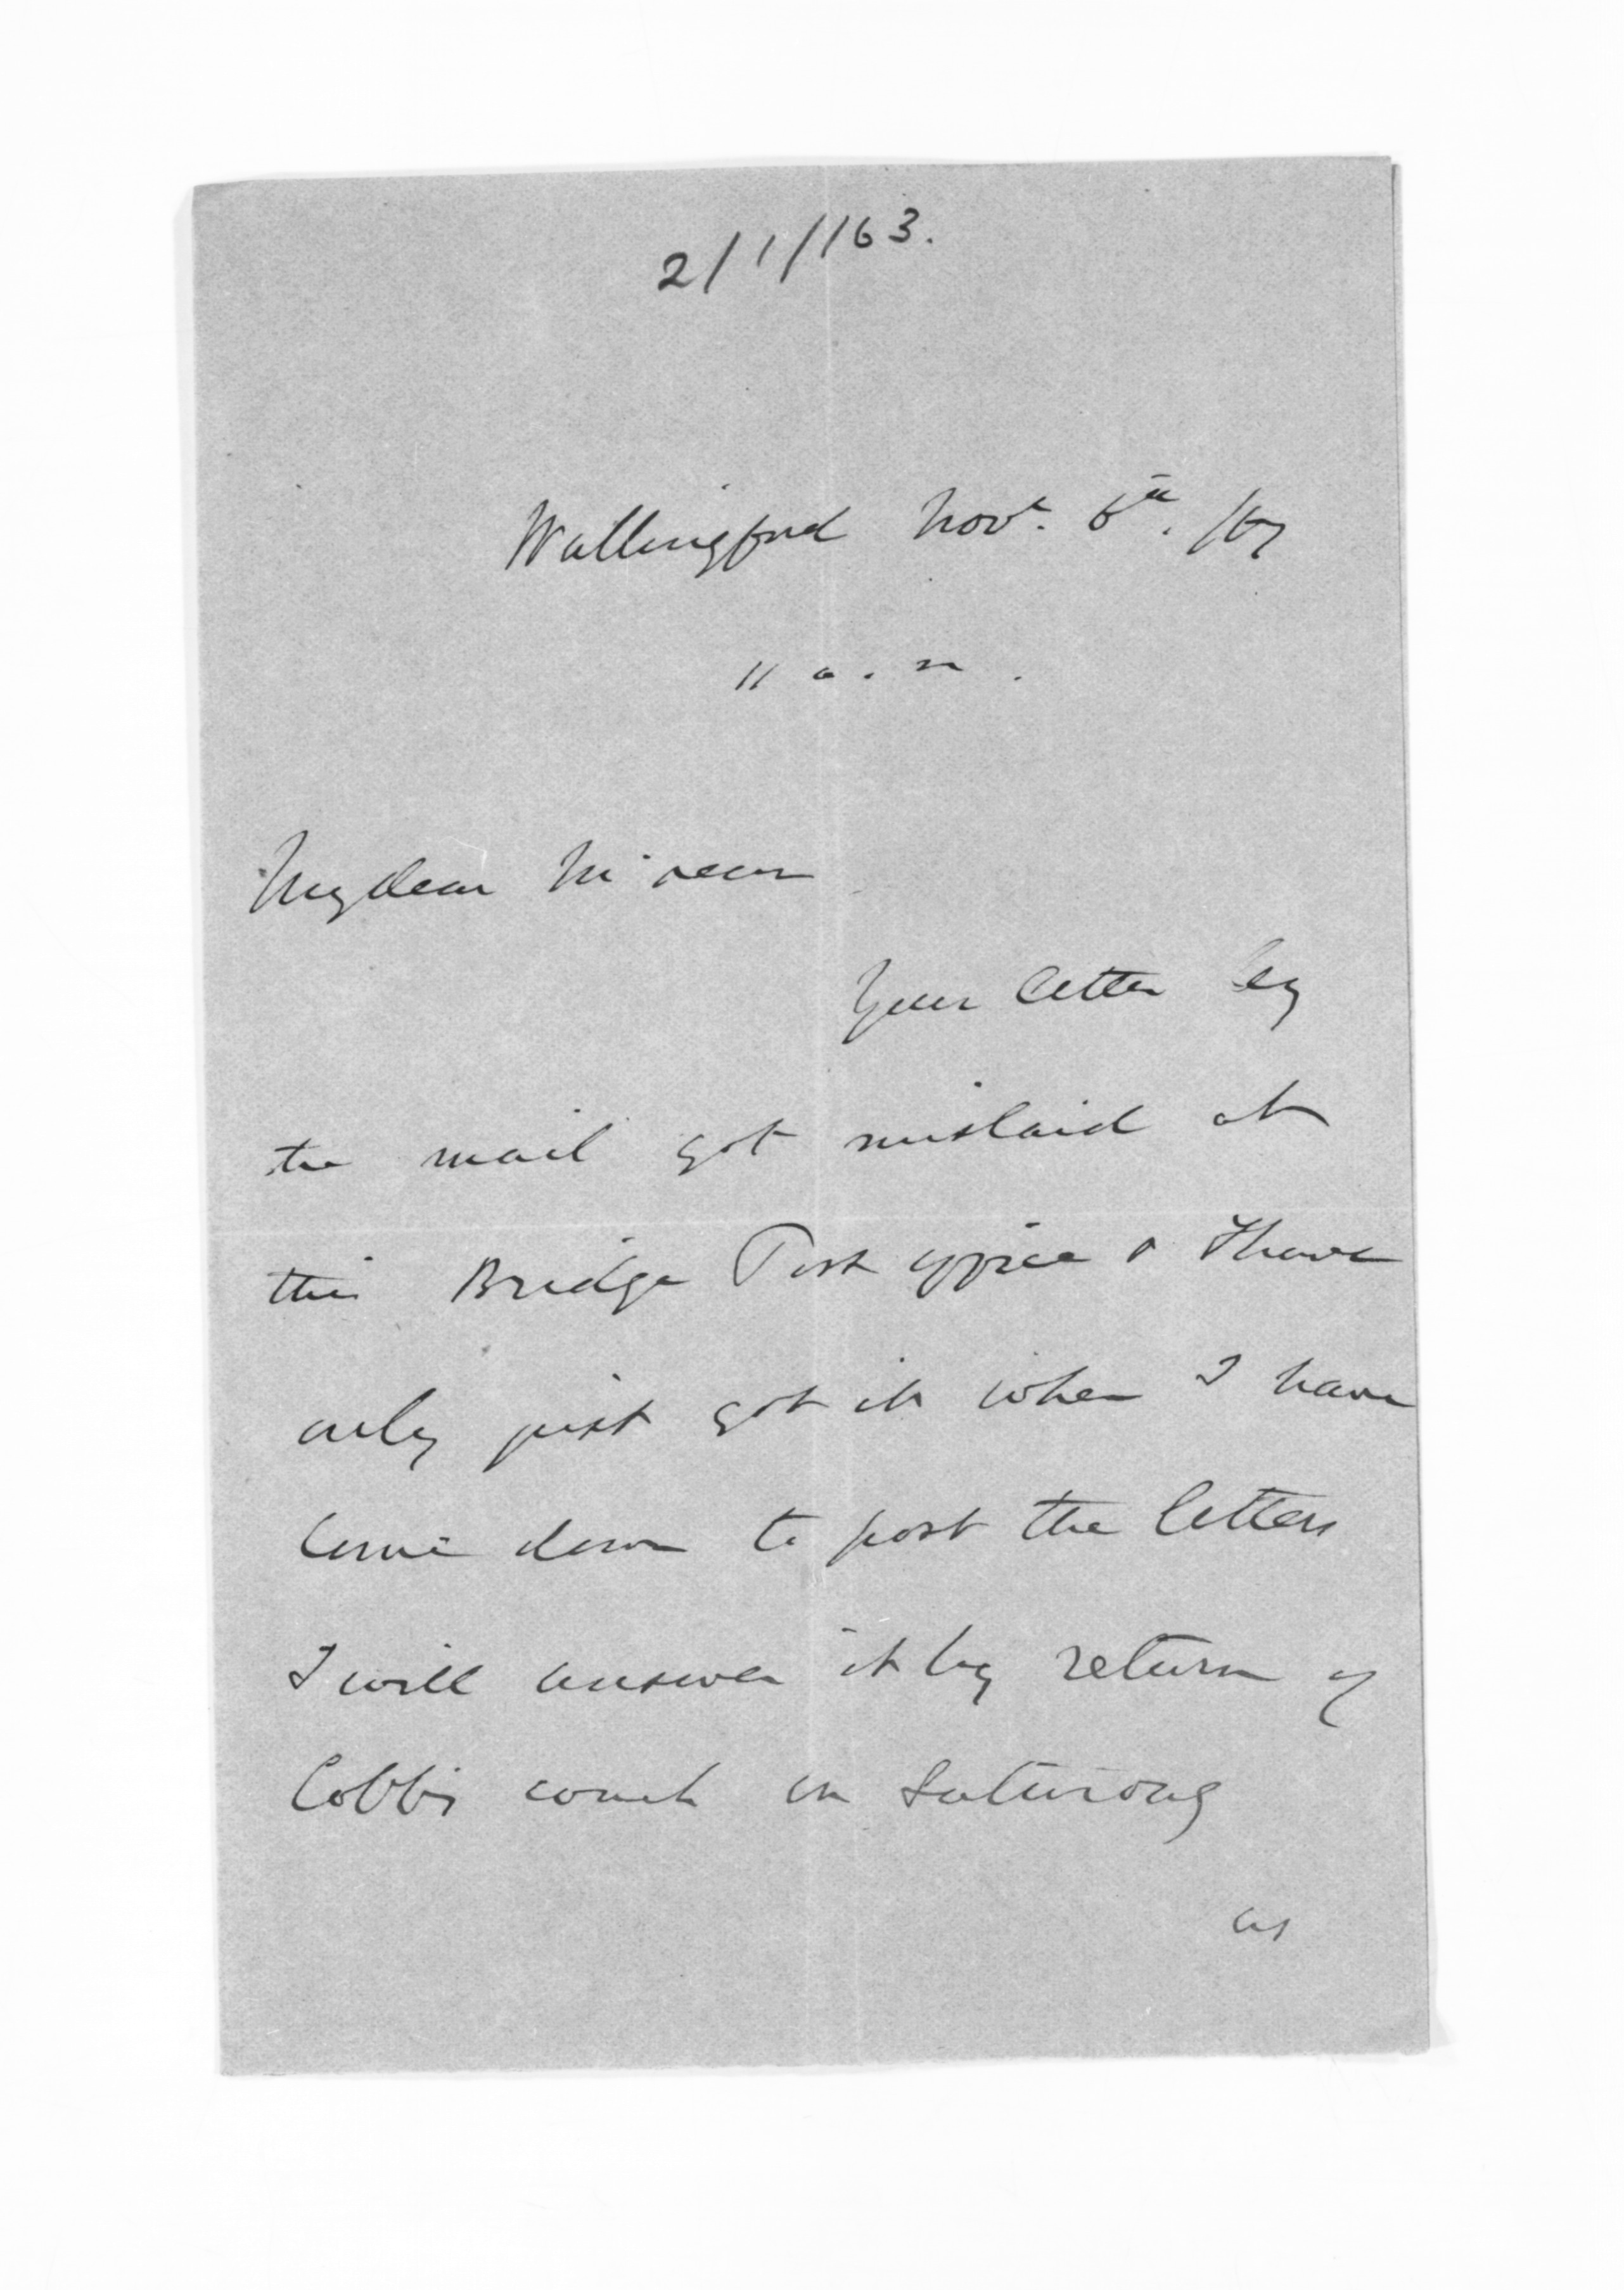 2/1/163.
Wallingford Novr. 6th. /67
11 a.m.
My dear
Your letter by
the mail got mislaid at
the Bridge Post office & I have
only just got it when I have
come down to post the letters
I will answer it by return of
Cobbs coach on Saturday
as